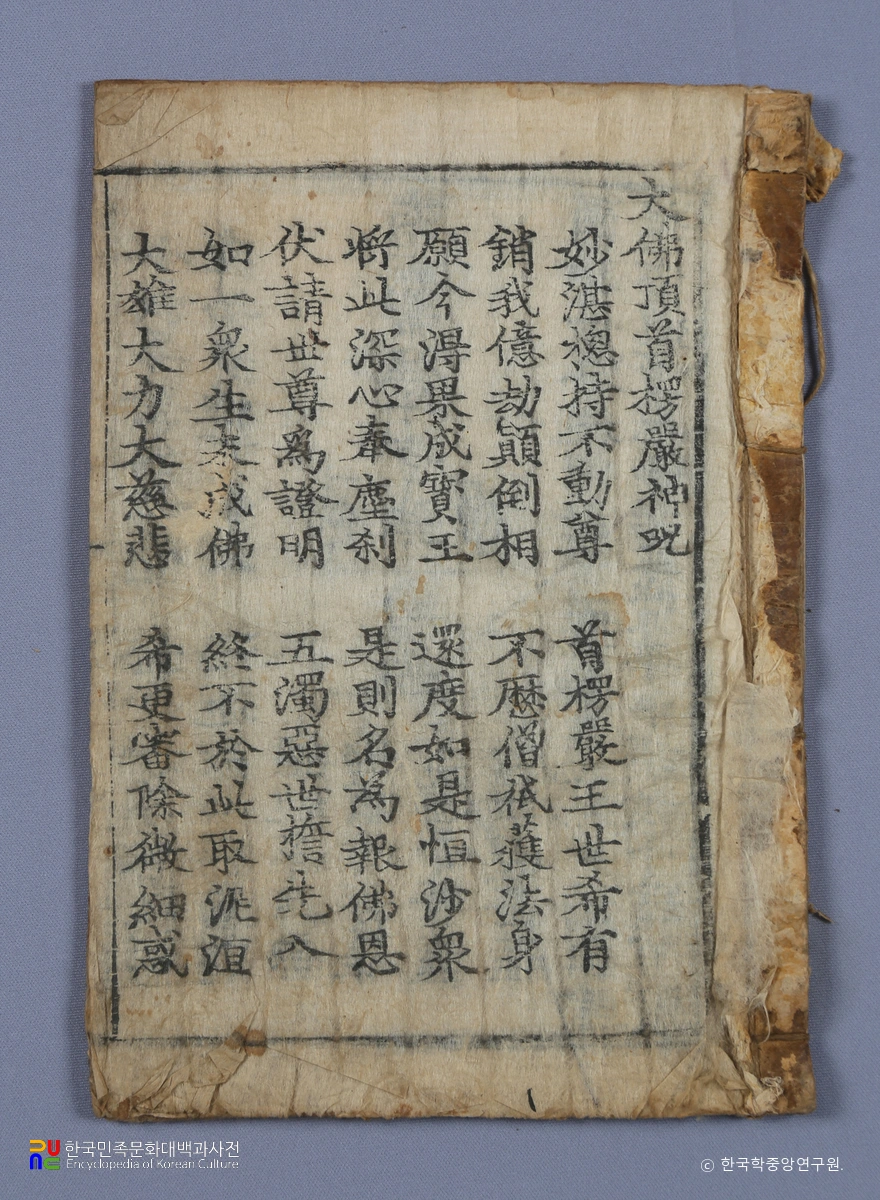 大佛頂首楞嚴神呪
妙湛捴持不動尊 首楞嚴王世希有
銷我億劫顛倒相 不歷僧祇獲法身
願今得果成寶王 還度如是恒沙衆
將此深心奉塵刹 是則名為報佛恩
伏請世尊爲證明 五濁惡世誓先入
如一衆生未成佛 終不於此取泥洹
大雄大力大慈悲 希更審除微細惑
한국민족문화대백과사전
Encyclopedia of Korean Culture
ⓒ 한국학중앙연구원.